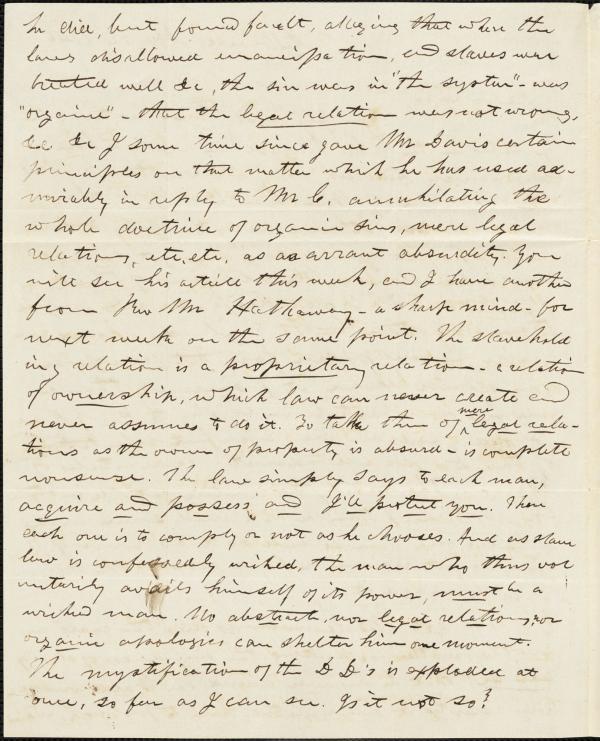 he did, but found fault, alleging that where the
laws disallowed emancipation, and slaves were
treated well &c, the sin was in "the system" - was
"organic" - that the legal relation was not wrong,
&c &c I some time since gave Mr Davis certain
principles on that matter which he has used ad-
mirably in reply to Mr C. annihilating the
whole doctrine of organic sins, mere legal
relations, etc, etc, as an arrant absurdity. You
will see his article this week, and I have another
from Rev Mr Hathaway - a sharp mind - for
next week on the same point. The slavehold
ing relation is a proprietary relation - a relation
of ownership, which law can never create and
never assumes to do it. To talk then of mere legal rela-
tions as the owner of property is absurd - is complete
nonsense. The law simply says to each man,
acquire and possess and I'll protect you. Then
each one is to comply or not as he chooses. And as slave
law is confessedly wicked, the man who thus vol
untarily avails himself of its power, must be a
wicked man. No abstract, nor legal relations, nor
organic apologies can shelter him one moment.
The mystification of the D D's is exploded at
once, so far as I can see. Is it not so?